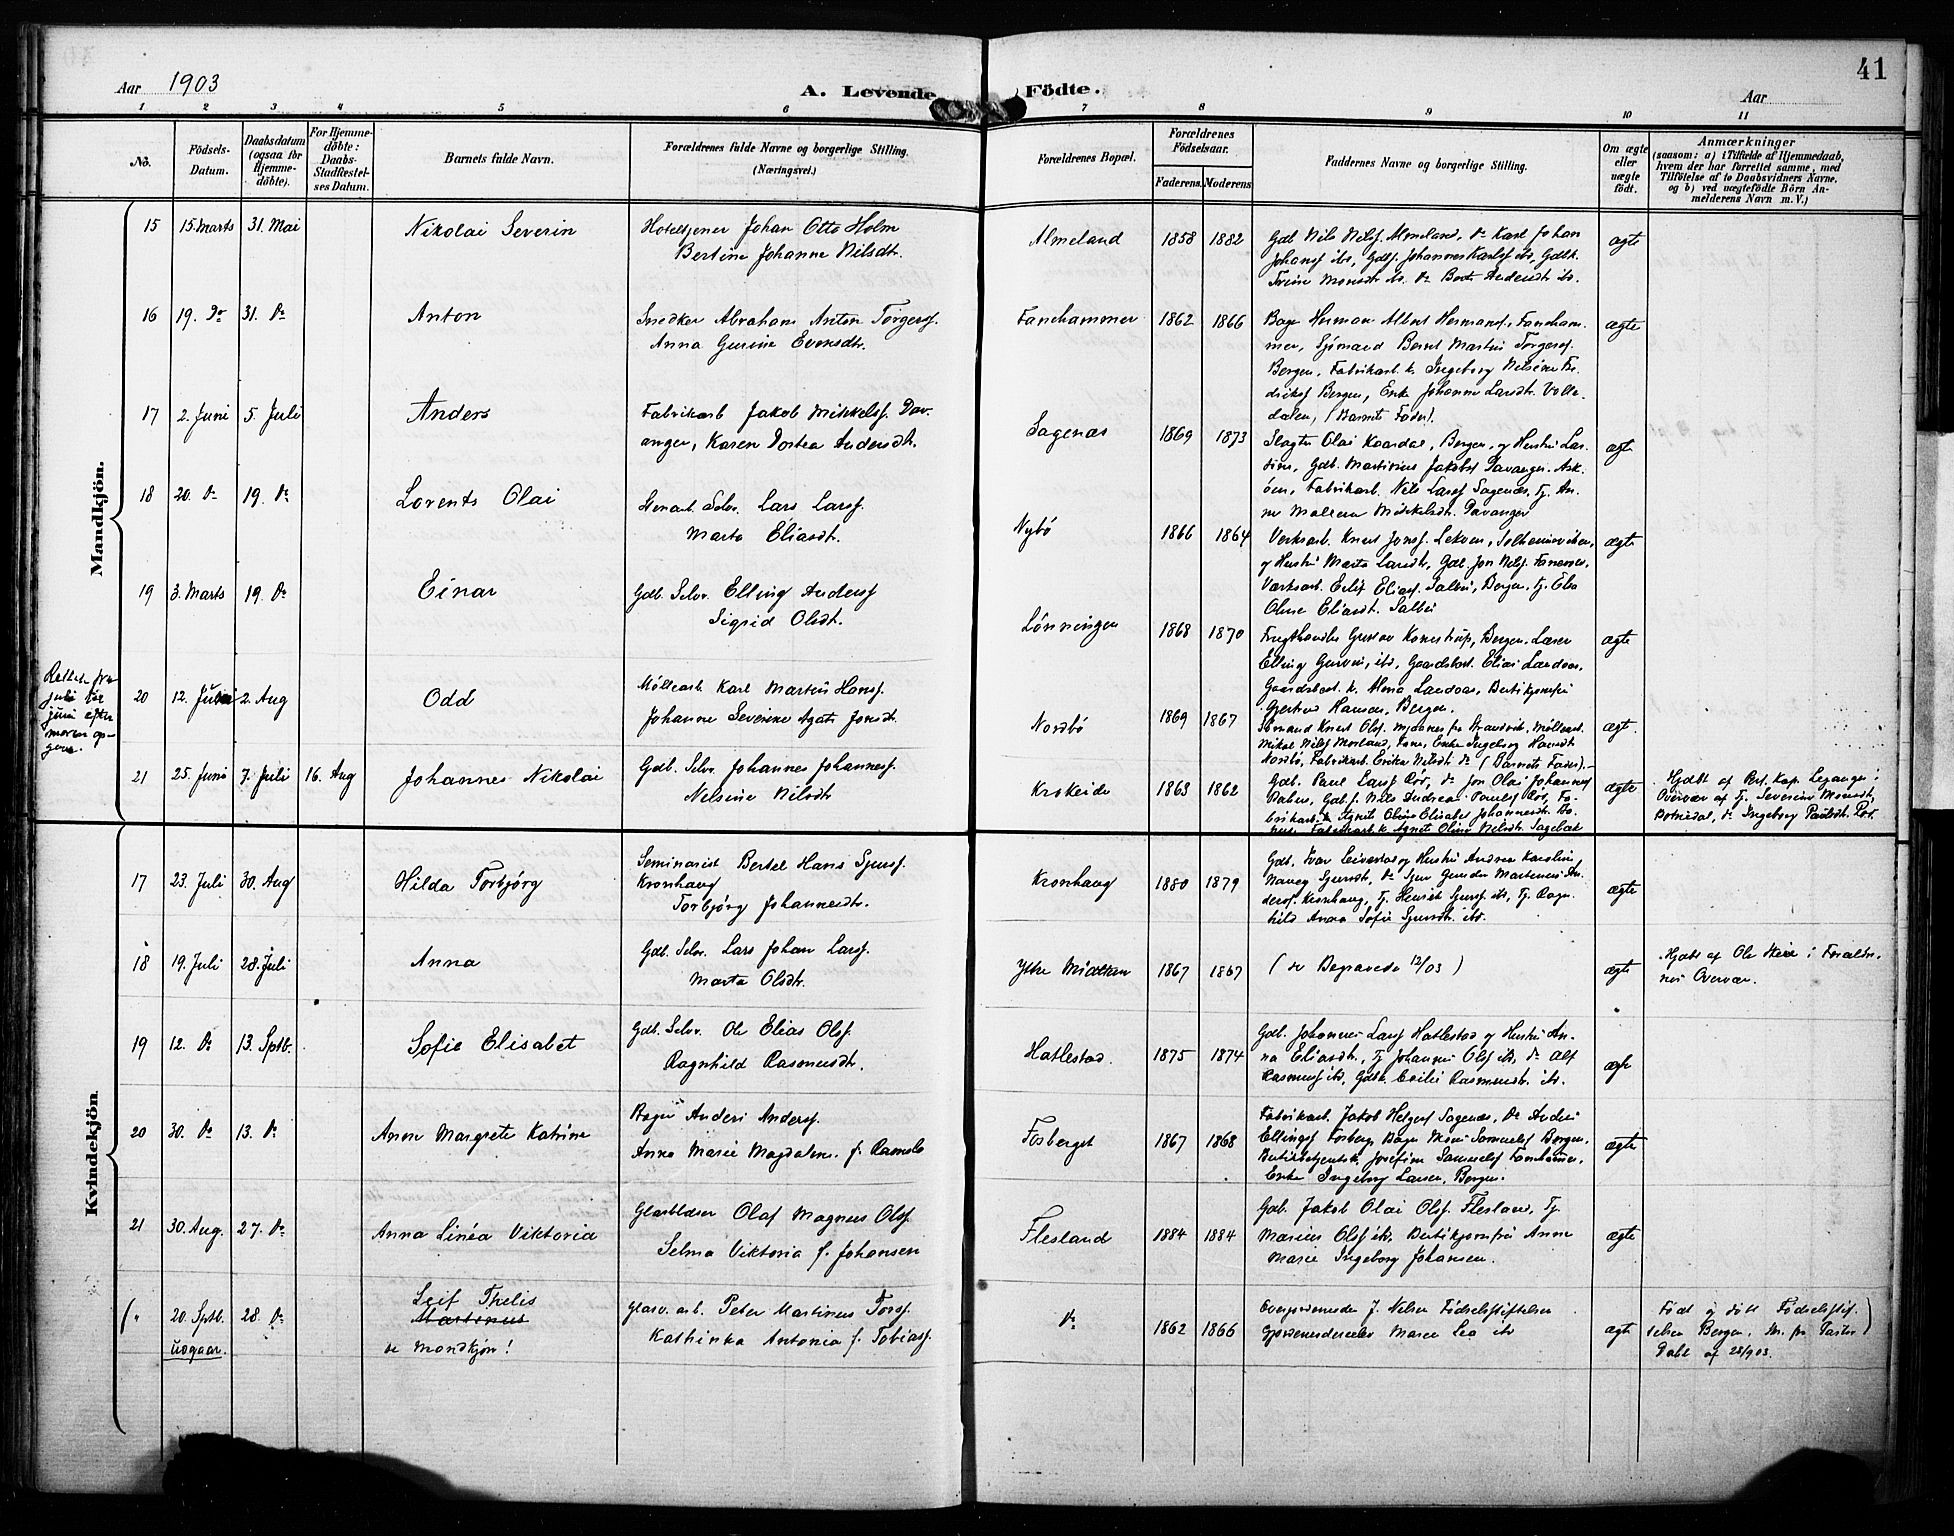 Aar 1903
A. Levende Födte.
41
Aar
1 2 3 4 5 6 7 8 9 10 11
No.
Födsels-Datum.
Daabsdatum (ogsaa for Hjemme-döbte).
For Hjemme-döbte: Daabs-Stadfæstel-ses Datum.
Barnets fulde Navn.
Forældrenes fulde Navne og borgerlige Stilling.
(Næringsvei.)
Forældrenes Bopæl.
Forældrenes Födselsaar.
Faderens. Moderens
Faddernes Navne og borgerlige Stilling.
Om ægte eller uægte födt.
Anmærkninger
(saasom: a) i Tilfælde af Hjemmedaab, hvem der har forrettet samme, med Tilföielse af to Daabsvidners Navne, og b) ved uægtefödte Börn An-melderens Navn m. V.)
Mandkjön.
15 15 Marts 31. Mai Nikolai Severin
Hoteltjener Johan Otto Holm
Bertine Johanne Nilsdtr.
Almeland 1858 1882
Gdb Nils Nilsf. Almeland, Do Karl Johan
Johansf ibd, Gdbf. Johannes Karlsf ibd, Gdbk.
ægte
16 19. Do 31. Do Anton
Snedker Abraham Anton Torgersf.
Anna Gurine Evensdtr.
Fanehammer 1862 1866
Bager Herman Albert Hermansf. Faneham-
mer, Sjömand Bernt Martin Torgersf.
Bergen, Fabrikarb. k. Ingeborg Nilsine Fre-
Bergen, Enke Johanne Larsdtr
dalen, (Barnets Fader).
ægte
17 2. Juni 5. Juli Anders
Fabrikarb Jakob Mikkelsf. Dav-
anger, Karen Dortea Andersdtr.
Sagenæs 1869 1873
Slagter Olai Kaardal, Bergen, og Hustru Lar-
sine, Gdb. Martinius Jakobsf Davanger. Ask-
öen, Fabrikarb. Nils Larsf Sagenæs, Tj. An-
ne Mikkelsdtr. Davanger
ægte
18 20. Do 19. Do Lorents Olai
Stenarb. Selv. Lars Larsf.
Marta Eliasdtr.
Nybö 1866 1864
Verksarb. Knut Jonsf. Lekven, Solheimsviken,
og Hustru Marta Larsdtr, Gdb. Jon Nilsf.
Værksarb. Eliasf. Bergen. Tj.
Oline Eliasdtr.
ægte
19 3. Marts 19. Do Einar
Gdb. Selv. Elling Andersf
Sigrid Olsdtr.
Lönningen 1868 1870
Frugthandler Gustav Bergen, Læser
Elling ibd, Gaardsbest. Elias Lærdaas,
Gaardsbest. k. Lærdaas, Butikjomfru
Gjertrud Hansen, Bergen.
ægte
Rettet fra
juli til
juni efter
moren op-
gave.
20 12. Juni 2. Aug Odd
Möllearb. Karl Martin Hansf.
Johanne Severine Agate Jonsdtr.
Nordbö 1869 1867
Sömand Knut Olsf. Mjaanes fra Strandvik. Möllearb.
Mikal Nilsf Morland, Fane, Enke Ingeborg Hansdtr
Nordbö, Fabrikarb. Erika Nilsdtr Do (Barnets Fader).
ægt.
21 25. Juni 7. Juli 16. Aug Johannes Nikolai
Gdb. Selv. Johannes Johannesf.
Nelsine Nilsdtr
Krokeide 1863 1862
Gdb. Paul Larsf Rör, Do Jon Olai Johannesf
Gdb. f. Nils Andreas Paulsf Rör, Fa-
brikarb. k. Agnet Oline Elisabet Johannesdtr.
Fabrikarb. k. Agnet Oline Nilsdtr. Sagebæk
ægte
Hjdbt af Res. Kap. Leganger i
Overvær af Tj. Severine Monsdtr,
Botnedal, Do Ingeborg Paulsdtr. Rör.
Kvindekjön.
17 23. Juli 30. Aug Hilda Torbjörg
Seminarist Bertel Hans Sjursf.
Kronhaug
Torbjörg Johannesdtr.
Kronhaug 1880 1879
Gdb. Ivar og Hustru Andrea Karoline
Sjursdtr, Do Sjur Gunder Martinus An-
dersf. Kronhaug, Tj. Henrik Sjursf. ibd, Tj. Ragn-
hild Anna Sofie Sjursdtr. ibd.
ægte
18 19. Juli 28. Juli Anna
Gdb. Selv. Lars Johan Larsf.
Marta Olsdtr.
Ytre Midttun 1867 1867
(se Begravede 12/03)
ægte
Hjdbt af Ole i Foræld-
nes Overvær.
19 12. Do 13. Septb. Sofie Elisabet
Gdb. Selv. Ole Elias Olsf.
Ragnhild Rasmusdtr.
Hatlestad. 1875 1874
Gdb. Johannes Larsf Hatlestad og Hustru An-
na Eliasdtr., Tj Johannes Olsf ibd, Do Alf
Rasmusf ibd, Gdbk. Cecilie Rasmusdtr. ibd.
ægte
20 30. Do 13. Do Anna Margrete Katrine
Bager Anders Andersf.
Anna Marie Magdalene f. Samuels
Fosberget 1867 1868
Fabrikarb. Jakob Helgesf Sagenæs, Do Anders
Ellingsf Fosberg, Bager Mons Samuelsf Bergen,
Butikbetjentsk. Josefine Samuelsf Fanehammer,
Enke Ingeborg Larsen, Bergen.
ægte
21 30. Aug. 27. Do Anna Linéa Viktoria
Glasblæser Olaf Magnus Olsf.
Selma Viktoria f. Johansen
Flesland 1884 1884
Gdb. Jakob Olai Olsf. Flesland, Tj.
Marius Olsf ibd. Butikjomfru Anna
Marie Ingeborg Johansen.
ægte
( " 20. Septb. 28. Do Leif Thelis
Martinus
se Mandkjön!
udgaar.
Glasv. arb. Peter Martinus Torsf.
Kathinka Antonia f. Tobiasf.
Do 1862 1866
Overjordemoder J. Nelsen Födselsstiftelsen
Gjordemoderelev Marie Lea ibd
ægte
Födt og döbt Födselsstif-
telsen Bergen. Skr. fra Pastor
Dahl af 28/9 03. )